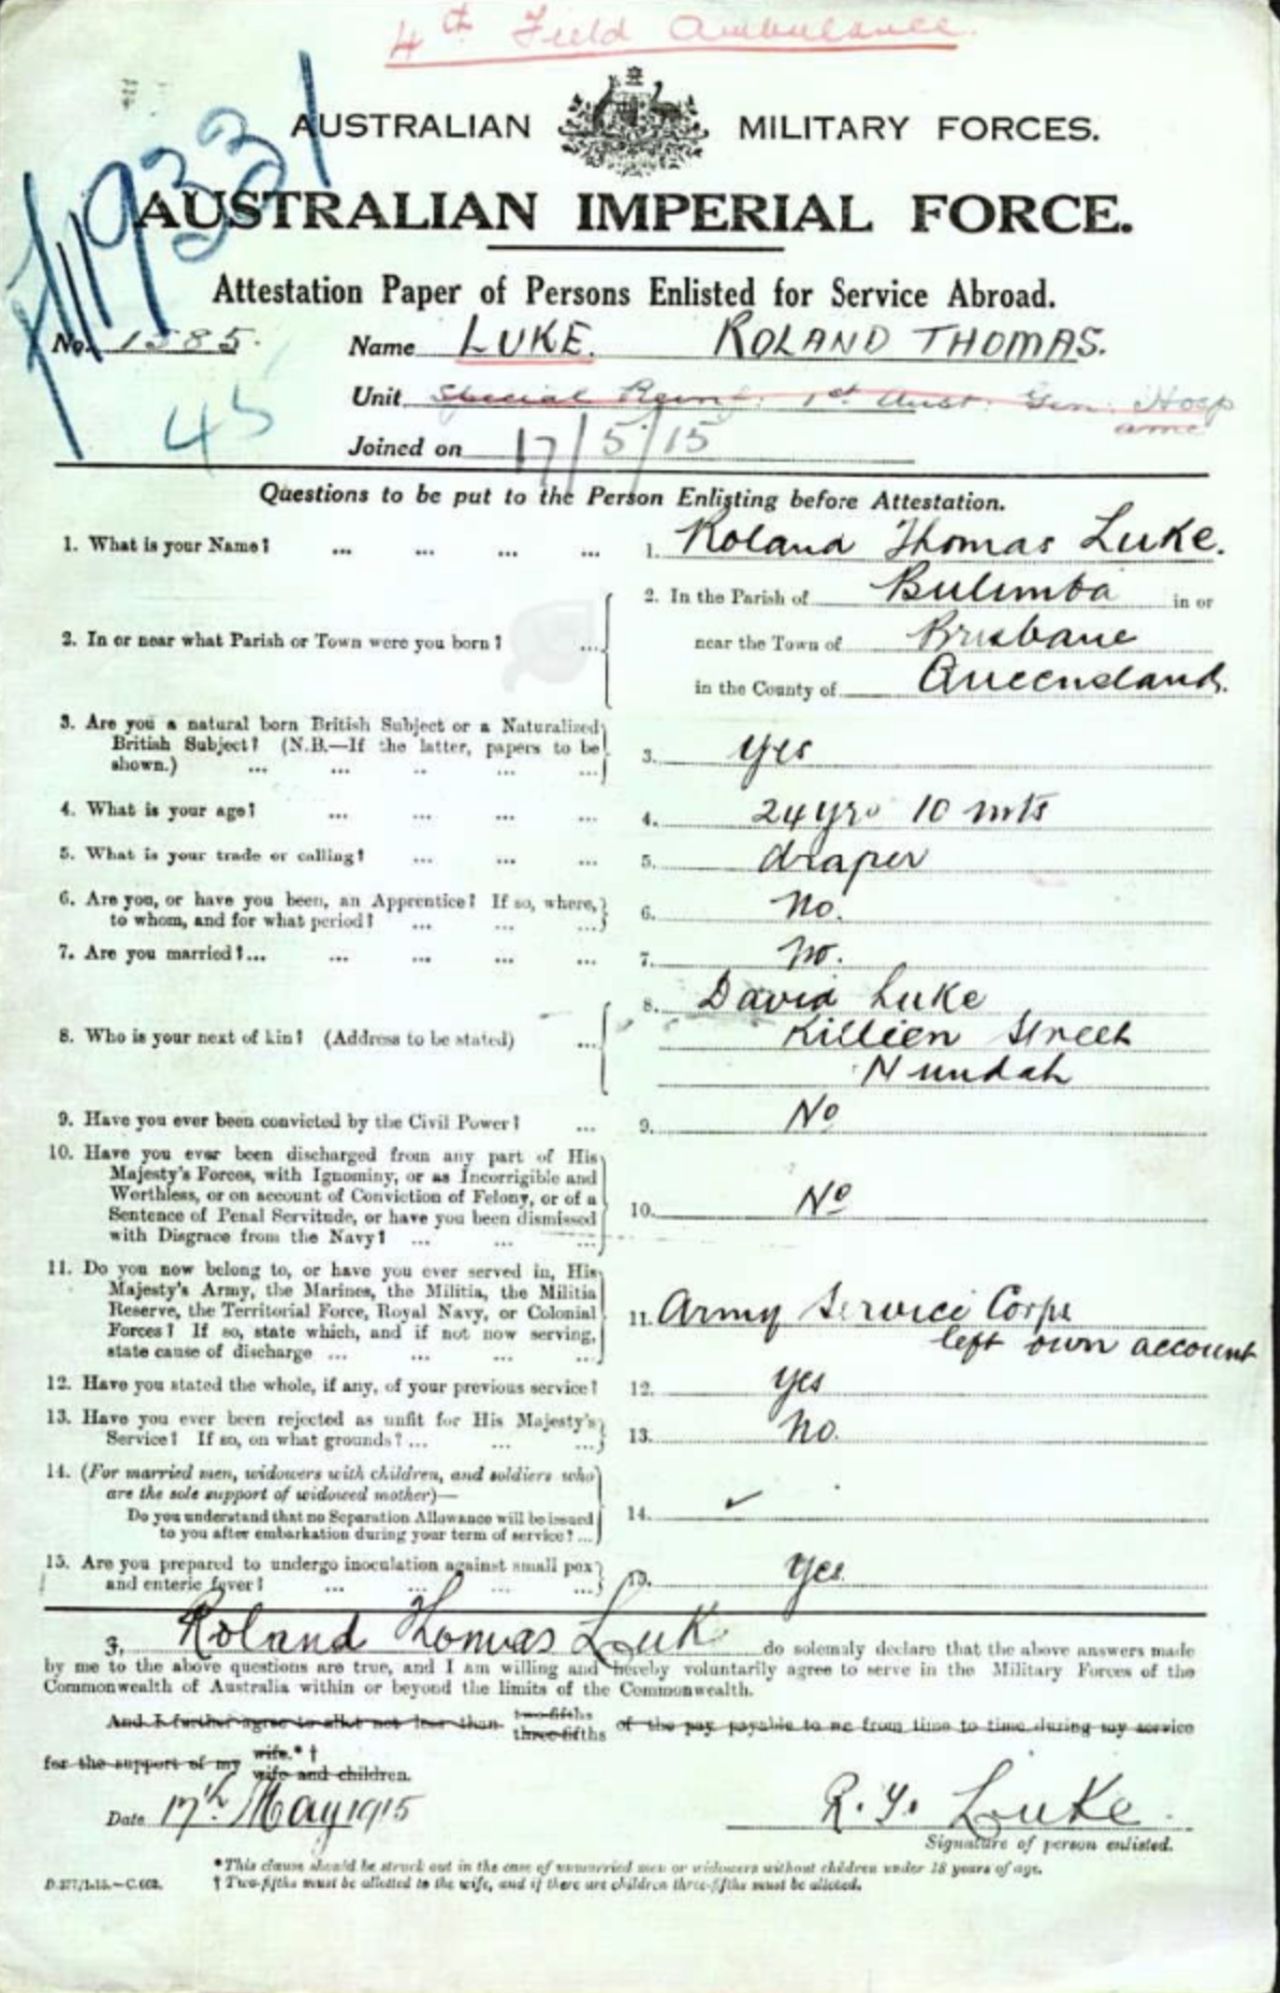 4th Field Ambulance.
AUSTRALIAN MILITARY FORCES.
AUSTRALIAN IMPERIAL FORCE.
Attestation Paper of Persons Enlisted for Service Abroad.
No. 1585. Name LUKE. ROLAND THOMAS.
45
Unit Special Reinf: 1st Aust. Gen. Hosp
amc
Joined on 17/5/15
Questions to be put to the Person Enlisting before Attestation.
1. What is your Name? ... ... ... ... 1. Roland Thomas Luke.
2. In or near what Parish or Town were you born? ... 2. In the Parish of Bulimba in or
near the Town of Brisbane
in the County of Queensland.
3. Are you a natural born British Subject or a Naturalized
British Subject? (N.B.—If the latter, papers to be
shown.) ... ... ... ... ... 3. yes
4. What is your age? ... ... ... ... 4. 24 yrs 10 mts
5. What is your trade or calling? ... ... ... 5. draper
6. Are you, or have you been, an Apprentice? If so, where,
to whom, and for what period? ... ... ... 6. no.
7. Are you married? ... ... ... ... ... 7. no.
8. Who is your next of kin? (Address to be stated) ... 8. David Luke
Killien Street
Nundah
9. Have you ever been convicted by the Civil Power? ... 9. No
10. Have you ever been discharged from any part of His
Majesty's Forces, with Ignominy, or as Incorrigible and
Worthless, or on account of Conviction of Felony, or of a
Sentence of Penal Servitude, or have you been dismissed
with Disgrace from the Navy? ... ... ... 10. No
11. Do you now belong to, or have you ever served in, His
Majesty's Army, the Marines, the Militia, the Militia
Reserve, the Territorial Force, Royal Navy, or Colonial
Forces? If so, state which, and if not now serving,
state cause of discharge ... ... ... ... 11. Army Service Corps
left own account
12. Have you stated the whole, if any, of your previous service? 12. yes
13. Have you ever been rejected as unfit for His Majesty's
Service? If so, on what grounds? ... ... ... 13. no.
14. (For married men, widowers with children, and soldiers who
are the sole support of widowed mother)—
Do you understand that no Separation Allowance will be issued
to you after embarkation during your term of service? ... 14. ✓
15. Are you prepared to undergo inoculation against small pox
and enteric fever? ... ... ... ... 15. yes
I, Roland Thomas Luke do solemnly declare that the above answers made
by me to the above questions are true, and I am willing and hereby voluntarily agree to serve in the Military Forces of the
Commonwealth of Australia within or beyond the limits of the Commonwealth.
And I further agree to allot not less than two-fifths three-fifths of the pay payable to me from time to time during my service
for the support of my wife.* † wife and children.
Date 17th May 1915 R. T. Luke.
Signature of person enlisted.
*This clause should be struck out in the case of unmarried men or widowers without children under 18 years of age.
† Two-fifths must be allotted to the wife, and if there are children three-fifths must be allotted.